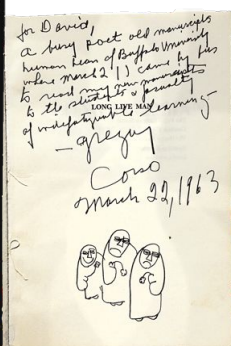 for David,
a busy poet old manuscripts
human bean of Buffalo University
where March 2 '63 came by bus
to read my new manuscripts
to the students a
LONG LIVE MAN
of indefatigable learning –
– gregory
Corso
March 22, 1963